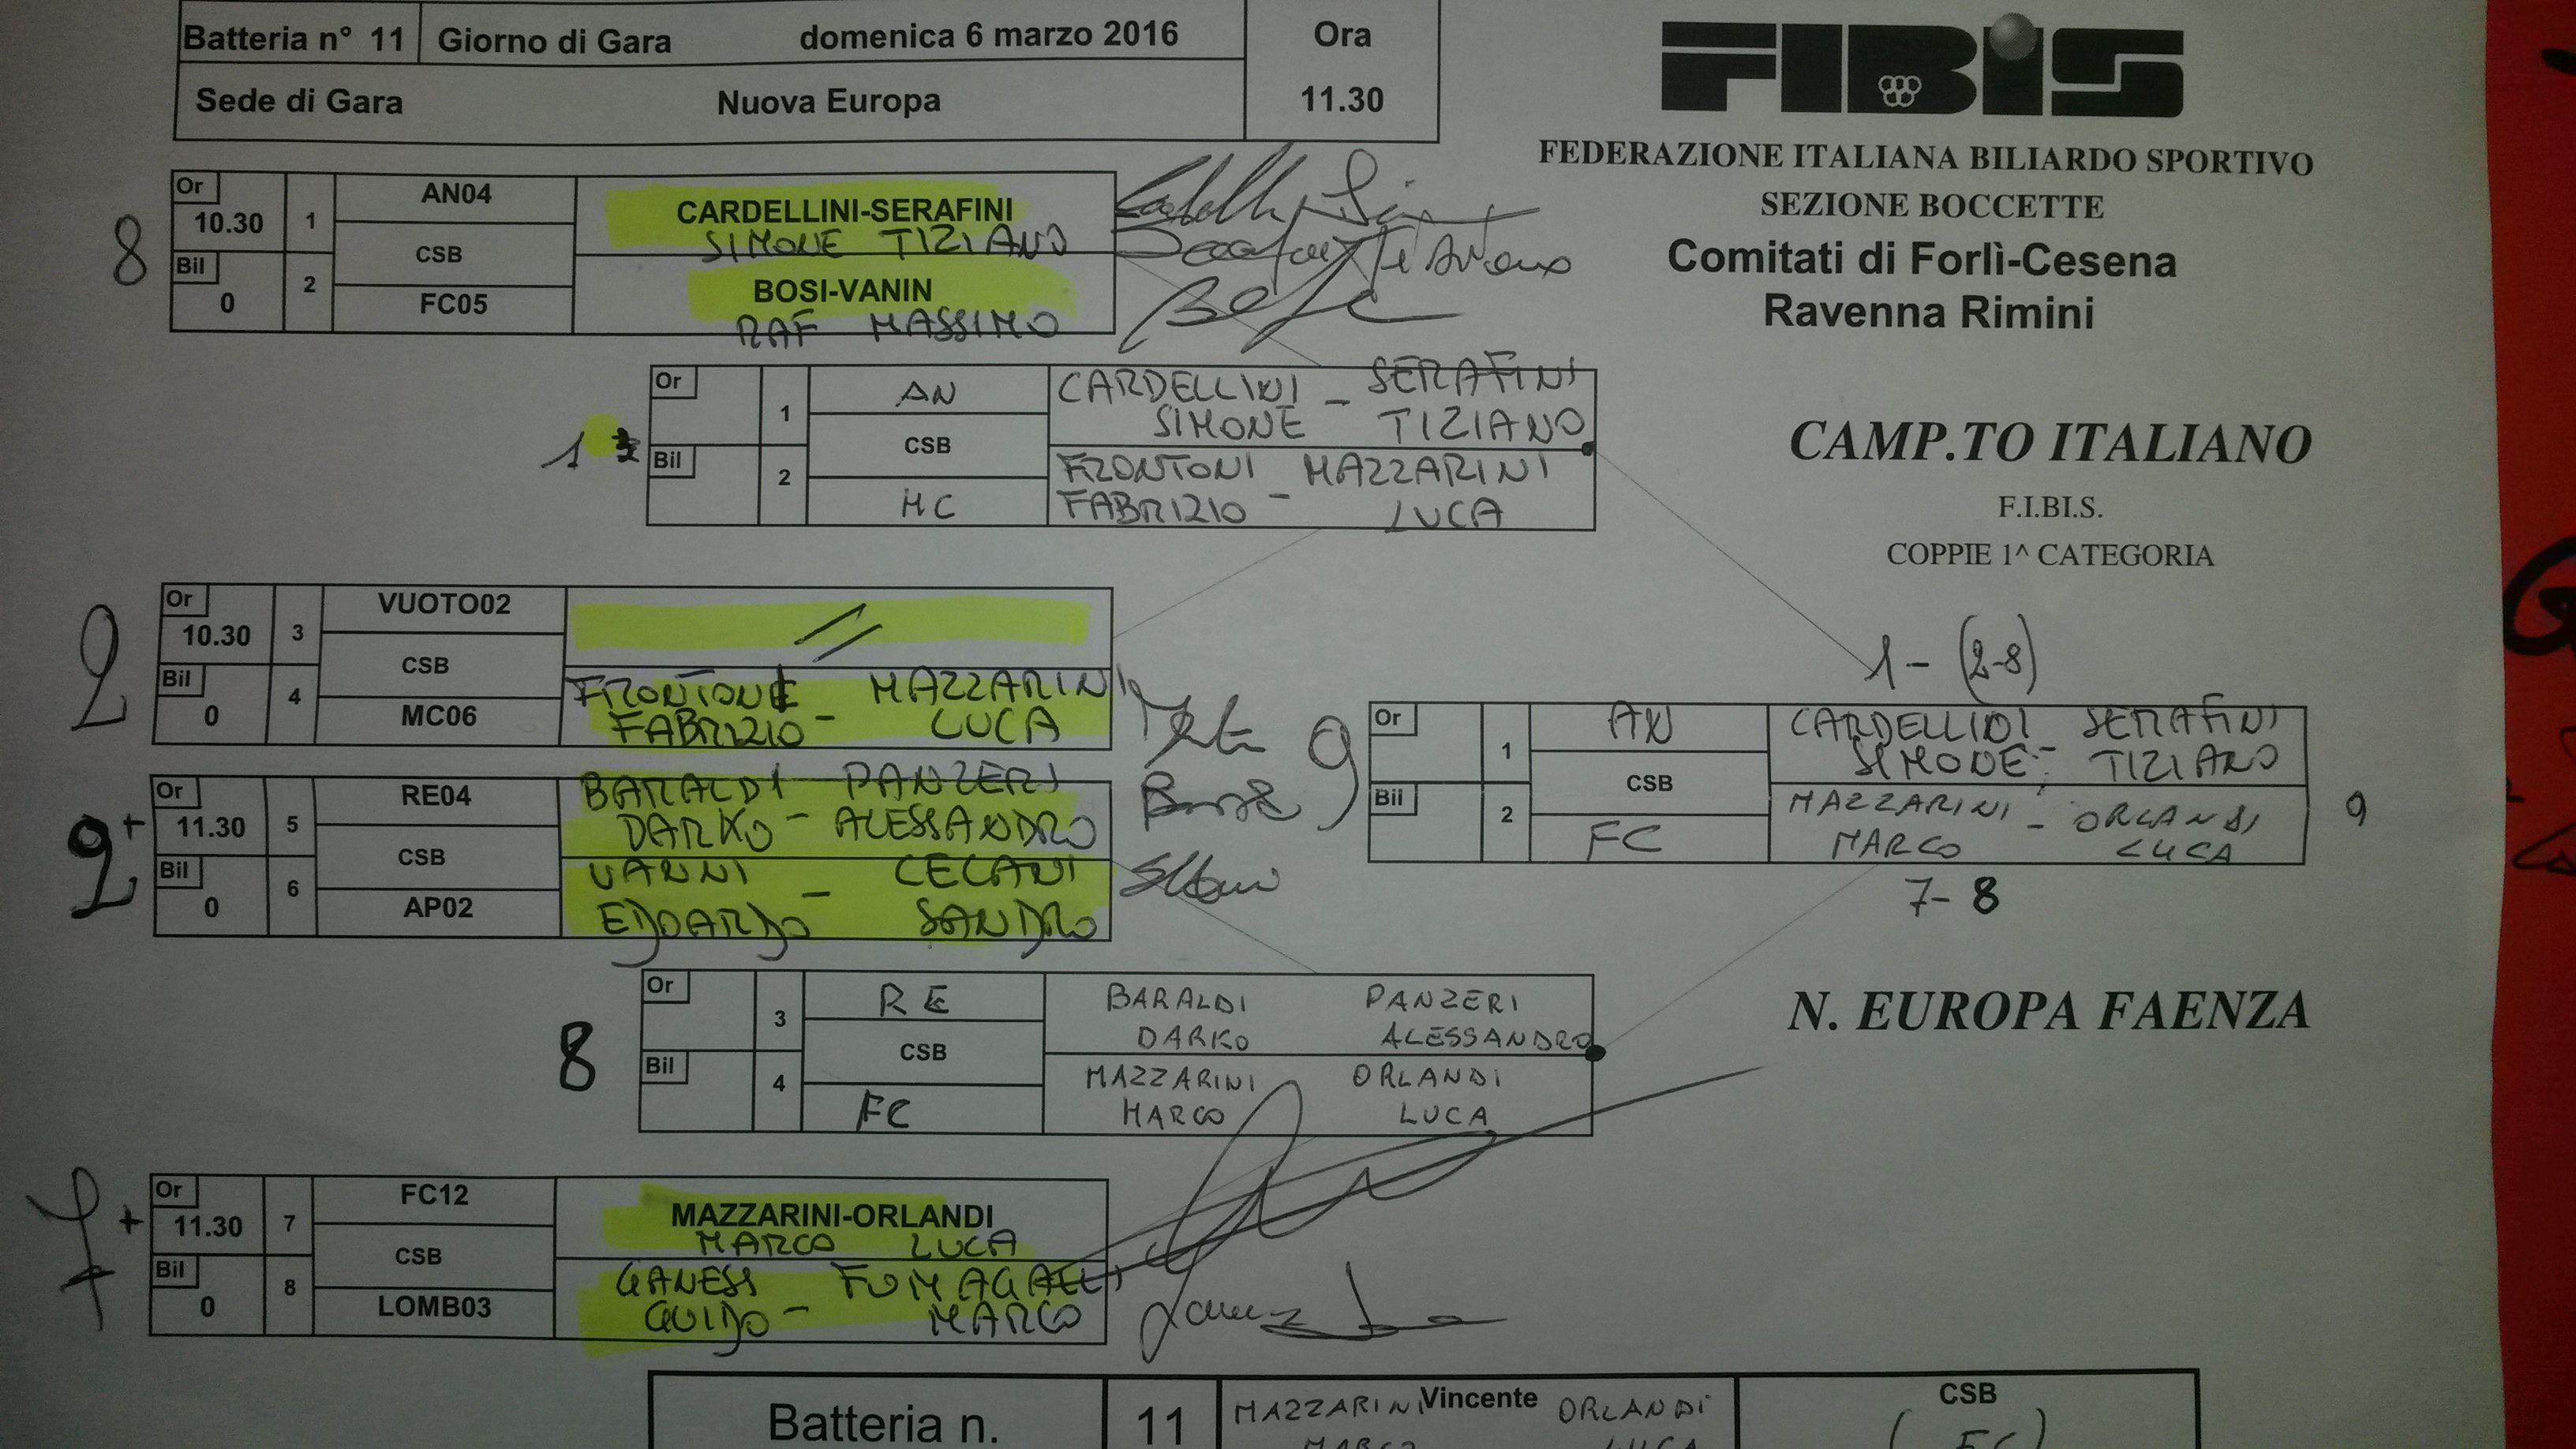 Batteria n° 11 Giorno di Gara domenica 6 marzo 2016 Ora
Sede di Gara Nuova Europa 11.30
FIBiS
FEDERAZIONE ITALIANA BILIARDO SPORTIVO
SEZIONE BOCCETTE
Comitati di Forlì-Cesena
Ravenna Rimini
CAMP.TO ITALIANO
F.I.BI.S.
COPPIE 1^ CATEGORIA
8
Or 10.30 1 AN04 CARDELLINI-SERAFINI
SIMONE TIZIANO
CSB
Bil 0 2 FC05 BOSI-VANIN
RAF MASSIMO
1
Or 1 AN CARDELLINI - SERAFINI
SIMONE TIZIANO
CSB
Bil 2 MC FRONTONI - MAZZARINI
FABRIZIO LUCA
2
Or 10.30 3 VUOTO02 //
CSB
Bil 0 4 MC06 FRONTONI MAZZARINI
FABRIZIO - LUCA
2+
Or 11.30 5 RE04 BARALDI PANZERI
DARKO - ALESSANDRO
CSB
Bil 0 6 AP02 VANNI - CECANI
EDOARDO SANDRO
1 - (2-8)
9
Or 1 AN CARDELLINI SERAFINI
SIMONE - TIZIANO
CSB
Bil 2 FC MAZZARINI - ORLANDI
MARCO LUCA
9
7-8
N. EUROPA FAENZA
8
Or 3 RE BARALDI PANZERI
DARKO ALESSANDRO
CSB
Bil 4 FC MAZZARINI ORLANDI
MARCO LUCA
7+
Or 11.30 7 FC12 MAZZARINI-ORLANDI
MARCO LUCA
CSB
Bil 0 8 LOMB03 GANESS FUMAGALLI
GUIDO - MARCO
Batteria n. 11 Vincente CSB
MAZZARINI ORLANDI
MARCO LUCA (FC)